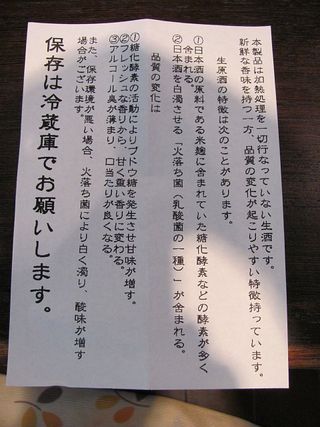 本製品は加熱処理を一切行なっていない生酒です。
新鮮な香味を持つ一方、品質の変化が起こりやすい特徴持っています。
生原酒の特徴は次のことがあります。
①日本酒の原料である米麹に含まれていた糖化酵素などの酵素が多く
含まれる。
②日本酒を白濁させる「火落ち菌（乳酸菌の一種）」が含まれる。
品質の変化は
①糖化酵素の活動によりブドウ糖を発生させ甘味が増す。
②フレッシュな香りから、甘く重い香りに変わる。
③アルコール臭が薄まり、口当たりが良くなる。
また、保存環境が悪い場合、火落ち菌により白く濁り、酸味が増す
場合がございます。
保存は冷蔵庫でお願いします。